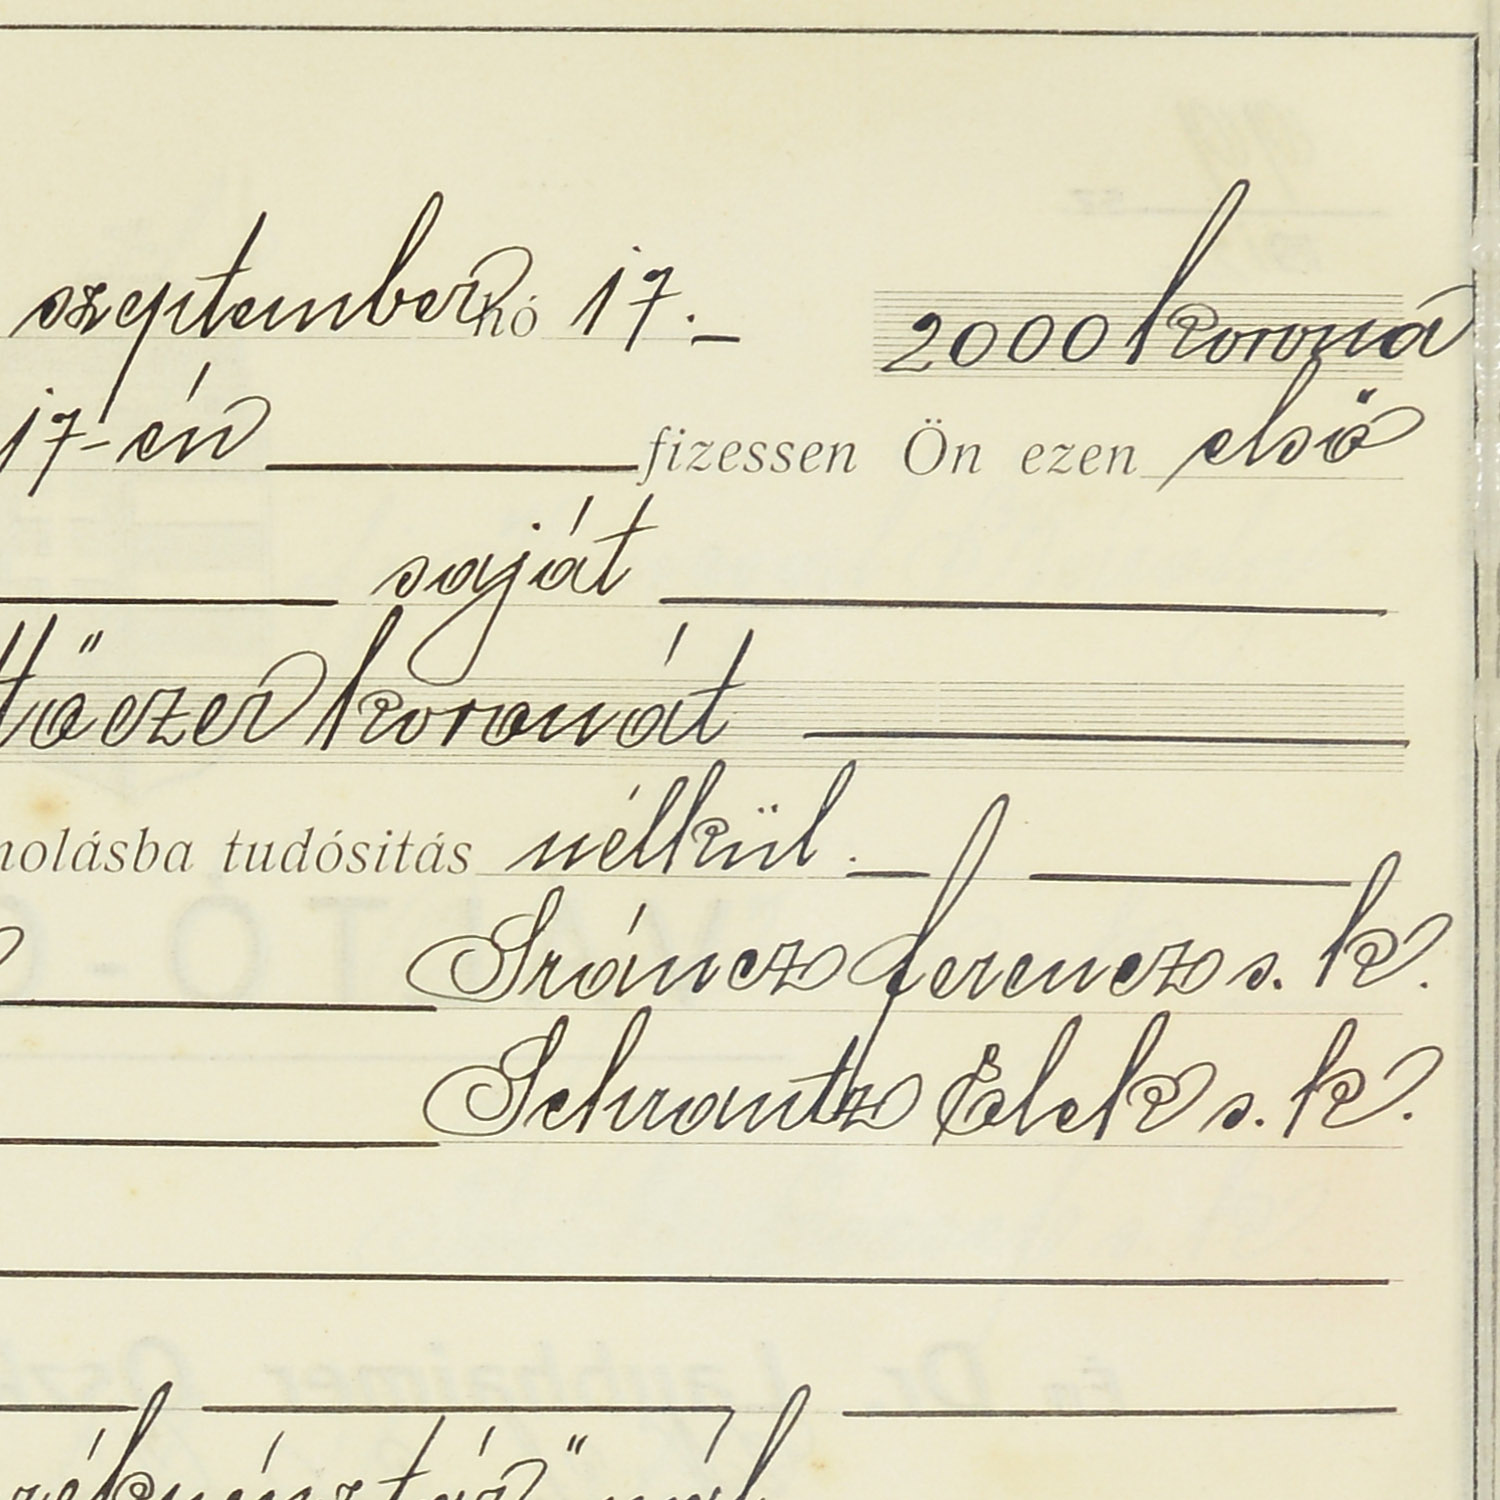 szeptember hó 17.— 2000 korona
17-én fizessen Ön ezen első
saját
ttőezer koronát
nolásba tudósitás nélkül.—
Sráncz Ferencz s. k.
Schrantz Elek s. k.
pénztár" nál